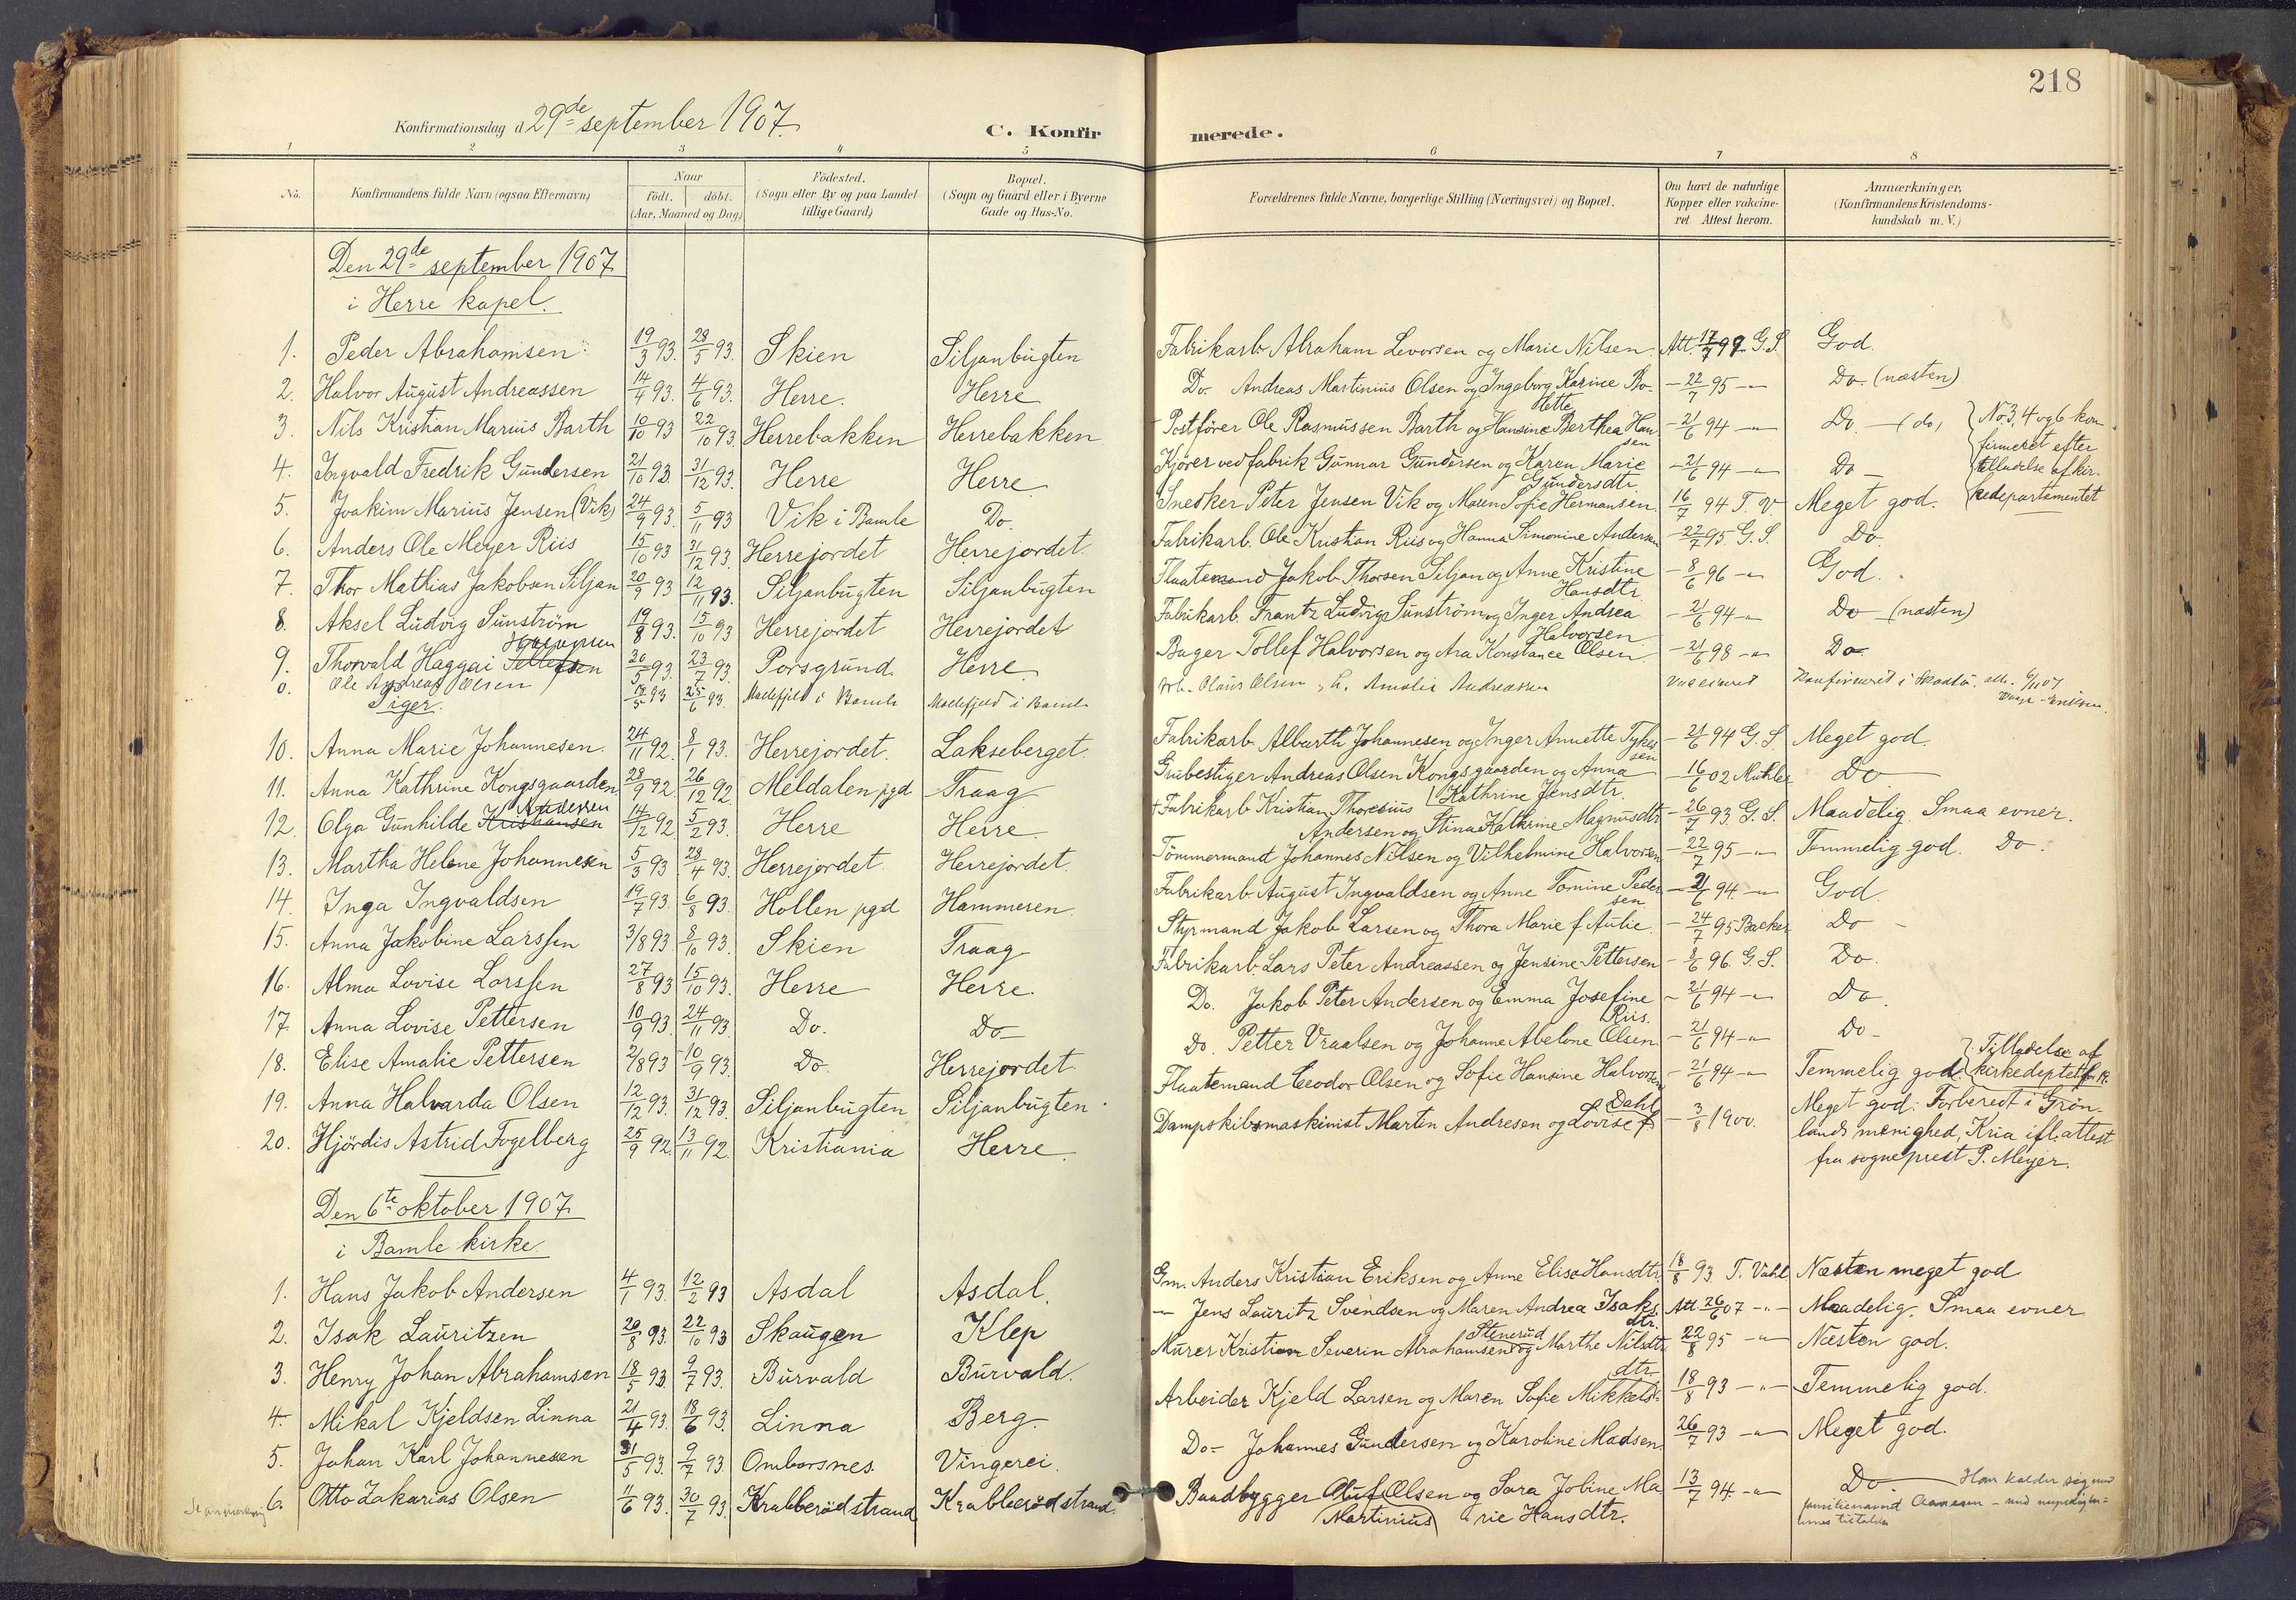 218
Konfirmationsdag d 29de september 1907.
C. Konfirmerede.
1 2 3 4 5 6 7 8
No. | Konfirmandens fulde Navn (ogsaa Efternavn) | Naar födt. döbt. (Aar, Maaned og Dag) | Födested. (Sogn eller By og paa Landet tillige Gaard) | Bopæl. (Sogn og Gaard eller i Byerne Gade og Hus-No. | Forældrenes fulde Navne, borgerlige Stilling (Næringsvei) og Bopæl. | Om havt de naturlige Kopper eller vakcineret. Attest herom. | Anmærkninger. (Konfirmandens Kristendomskundskab m. V.)
Den 29de september 1907
i Herre kapel.
1. Peder Abrahamsen 19/3 93. 28/5 93. Skien Siljanbugten Fabrikarb. Abraham Levorsen og Marie Nilsen. Att. 17/7 99 G.S. God.
2. Halvor August Andreassen 14/4 93. 4/6 93. Herre. Herre Do. Andreas Martinius Olsen og Ingeborg Karine Bo- - 22/7 95 -"- Do. (næsten)
3. Nils Kristian Marius Barth 10/10 93 22/10 93 Herrebakken Herrebakken Postförer Ole Rasmussen Barth og Hansine Berthea Hansen - 21/6 94 -"- Do. - (do) No 3, 4 og 6 konfirmeret efter tilladelse af kirkedepartementet
4. Ingvald Fredrik Gundersen 21/10 93. 31/12 93. Herre Herre Kjörer ved fabrik Gunnar Gundersen og Karen Marie Gundersdtr. - 21/6 94 -"- Do -
5. Joakim Marius Jensen (Vik) 24/9 93. 5/11 93 Vik i Bamle Do. Snedker Peter Jensen Vik og Maren Sofie Hermansen. 16/7 94 T.V. Meget god.
6. Anders Ole Meyer Riis 15/10 93 31/12 93. Herrejordet Herrejordet. Fabrikarb. Ole Kristian Riis og Hanna Simonine Andersen - 22/7 95. G.S. Do.
7. Thor Mathias Jakobsen Siljan 20/9 93 12/11 93. Siljanbugten Siljanbugten Flaatemand Jakob Thorsen Siljan og Anne Kristine Hansdtr. - 8/6 96 -"- God.
8. Aksel Ludvig Sunström 19/8 93. 15/10 93 Herrejordet Herrejordet Fabrikarb. Frantz Ludvig Sunström og Inger Andrea Halvorsen - 21/6 94 -"- Do - (næsten)
9. Thorvald Haggai Tollefsen Halvorsen 30/5 93. 23/7 93. Porsgrund. Herre Bager Tollef Halvorsen og Ara Konstance Olsen. - 21/6 98 -"- Do
0. Ole Andreas Olsen 25/6 93. i Bamle i Bamle Olaus Olsen Amalie Andreassen Vaccineret Konfirmeret i
Piger.
10. Anna Marie Johannesen. 24/11 92. 8/1 93. Herrejordet. Lakseberget. Fabrikarb. Albarth Johannesen og Inger Annette Tykesen - 21/6 94 G.S Meget god.
11. Anna Kathrine Kongsgaarden 28/9 92. 26/12 92. Meldalen pgd Traag Grubestiger Andreas Olsen Kongsgaarden og Anna Kathrine Jensdtr. - 16/6 02 Mühler Do
12. Olga Gunhilde Kristiansen Andersen 14/12 92 5/2 93. Herre Herre. + Fabrikarb. Kristian Thoresius Andersen og Stina Kathrine Magnusdtr - 26/7 93. G.S. Maadelig. Smaa evner.
13. Martha Helene Johannesen 5/3 93 28/4 93. Herrejordet. Herrejordet. Tömmermand Johannes Nilsen og Vilhelmine Halvorsen - 22/7 95 -"- Temmelig god. Do.
14. Inga Ingvaldsen 19/7 93. 6/8 93. Hollen pgd Hammeren. Fabrikarb. August Ingvaldsen og Anne Tomine Pedersen - 21/6 94 -"- God.
15. Anna Jakobine Larssen 3/8 93 8/10 93. Skien Traag Styrmand Jakob Larsen og Thora Marie f. Aulie. - 24/7 95 Backer Do -
16. Alma Lovise Larssen 27/8 93 15/10 93. Herre Herre. Fabrikarb. Lars Peter Andreassen og Jensine Pettersen - 8/6 96. G.S. Do.
17. Anna Lovise Pettersen 10/9 93. 24/11 93. Do. Do. Do. Jakob Peter Andersen og Emma Josefine Riis. - 21/6 94 -"- Do.
18. Elise Amalie Pettersen 2/8 93 10/9 93. Do. Herrejordet Do. Petter Vraalsen og Johanne Abelone Olsen - 21/6 94 -"- Do -
19. Anna Halvarda Olsen 12/12 93. 31/12 93. Siljanbugten Siljanbugten Flaatemand Ceodor Olsen og Sofie Hansine Halvorsen - 21/6 94 -"- Temmelig god. Tilladelse af kirkedeptet
20. Hjördis Astrid Fogelberg 25/9 92. 13/11 92. Kristiania Herre. Dampskibsmaskinist Martin Andresen og Lovise f. Dahl - 3/8 1900. Meget god. Forberedt i Grönlands menighed, Kria ifl. attest fra sogneprest P. Meyer.
Den 6te oktober 1907
i Bamle kirke.
1. Hans Jakob Andersen 4/1 93. 12/2 93 Asdal Asdal. Gm. Anders Kristian Eriksen og Anne Elise Hansdtr. 18/8 93. T. Vahl Næsten meget god
2. Isak Lauritzen 20/8 93. 22/10 93 Skaugen Klep - Jens Lauritz Svendsen og Maren Andrea Isaksdtr. Att. 26/6 07 -"- Maadelig. Smaa evner
3. Henry Johan Abrahamsen 18/5 93. 9/7 93. Burvald Burvald. Murer Kristian Severin Abrahamsen Stenerud og Marthe Nilsdtr. 22/8 95 -"- Næsten god.
4. Mikal Kjeldsen Linna 21/4 93. 18/6 93. Linna Berg. Arbeider Kjeld Larsen og Maren Sofie Mikkelsdtr 18/8 93 -"- Temmelig god.
5. Johan Karl Johannesen 31/5 93. 9/7 93. Omborsnes Vingerei. Do - Johannes Gundersen og Karoline Madsen 26/7 93 -"- Meget god.
6. Otto Zakarias Olsen 11/6 93. 30/7 93. Krabberödstrand Krabberödstrand. Baadbygger Oluf Martinius Olsen og Sara Joline Marie Hansdtr. 13/7 94. -"- Do. Han kalder sig med familienavnet Aanesen - med